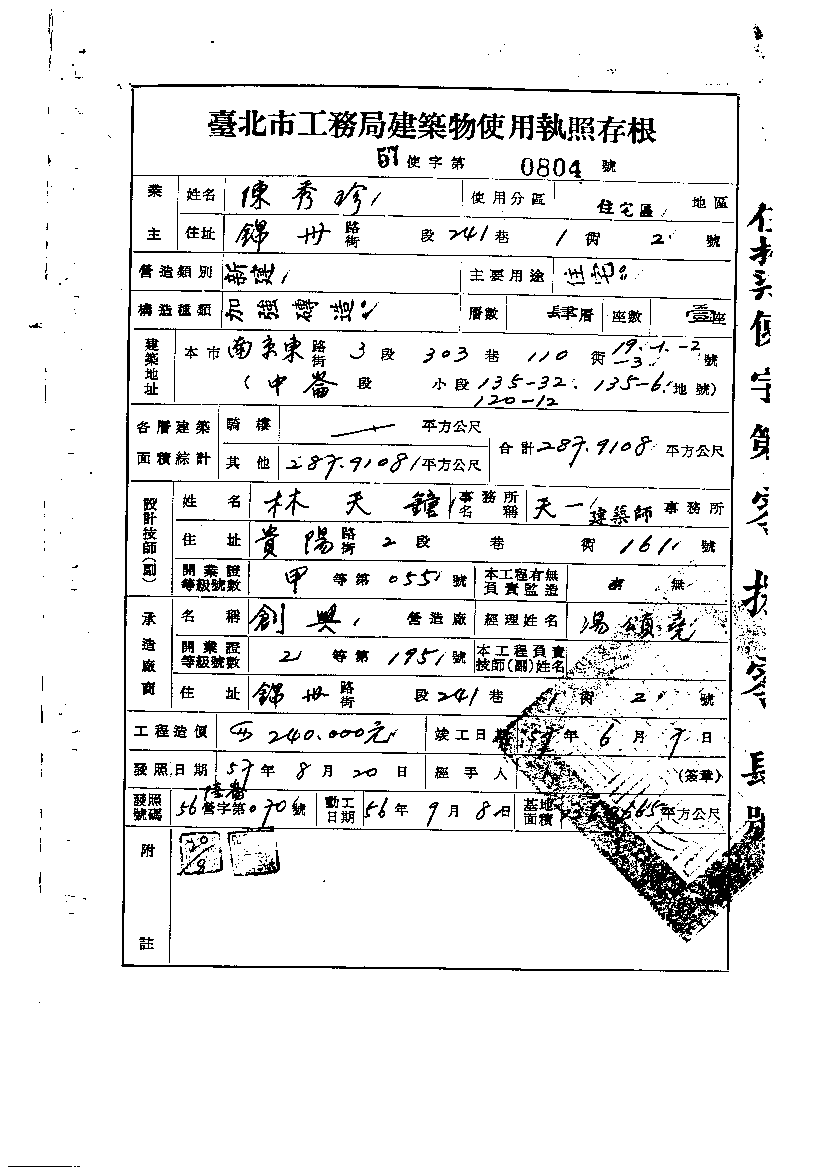 臺北市工務局建築物使用執照存根
57使字第 0804 號
業主 姓名 陳秀珍 使用分區 住宅區 地區
住址 錦州 路街 段 241巷 1 衖 2 號
營造類別 新建 主要用途 住宅
構造種類 加強磚造 層數 層 座數 壹座
建築地址 本市 南京東 路街 3 段 303 巷 110 衖 19.-1.-2 -3. 號
(中崙 段 小段 135-32. 135-6. 120-12 地號)
各層建築面積綜計 騎樓 平方公尺 合計 287.9108 平方公尺
其他 287.9108 平方公尺
設計技師(副) 姓名 林天鐘 事務所名稱 天一建築師 事務所
住址 貴陽 路街 2 段 巷 衖 161 號
開業證等級號數 甲 等第 055 號 本工程有無負責監造 無
承造廠商 名稱 創興 營造廠 經理姓名 湯頌堯
開業證等級號數 乙 等第 195 號 本工程負責技師(副)姓名
住址 錦州 路街 段 241 巷 1 衖 2 號
工程造價 240.000元 竣工日期 57 年 6 月 7 日
發照日期 57 年 8 月 20 日 經手人 (簽章)
發照號碼 56 營字第 070 號 動工日期 56 年 9 月 8 日 基地面積 平方公尺
附註